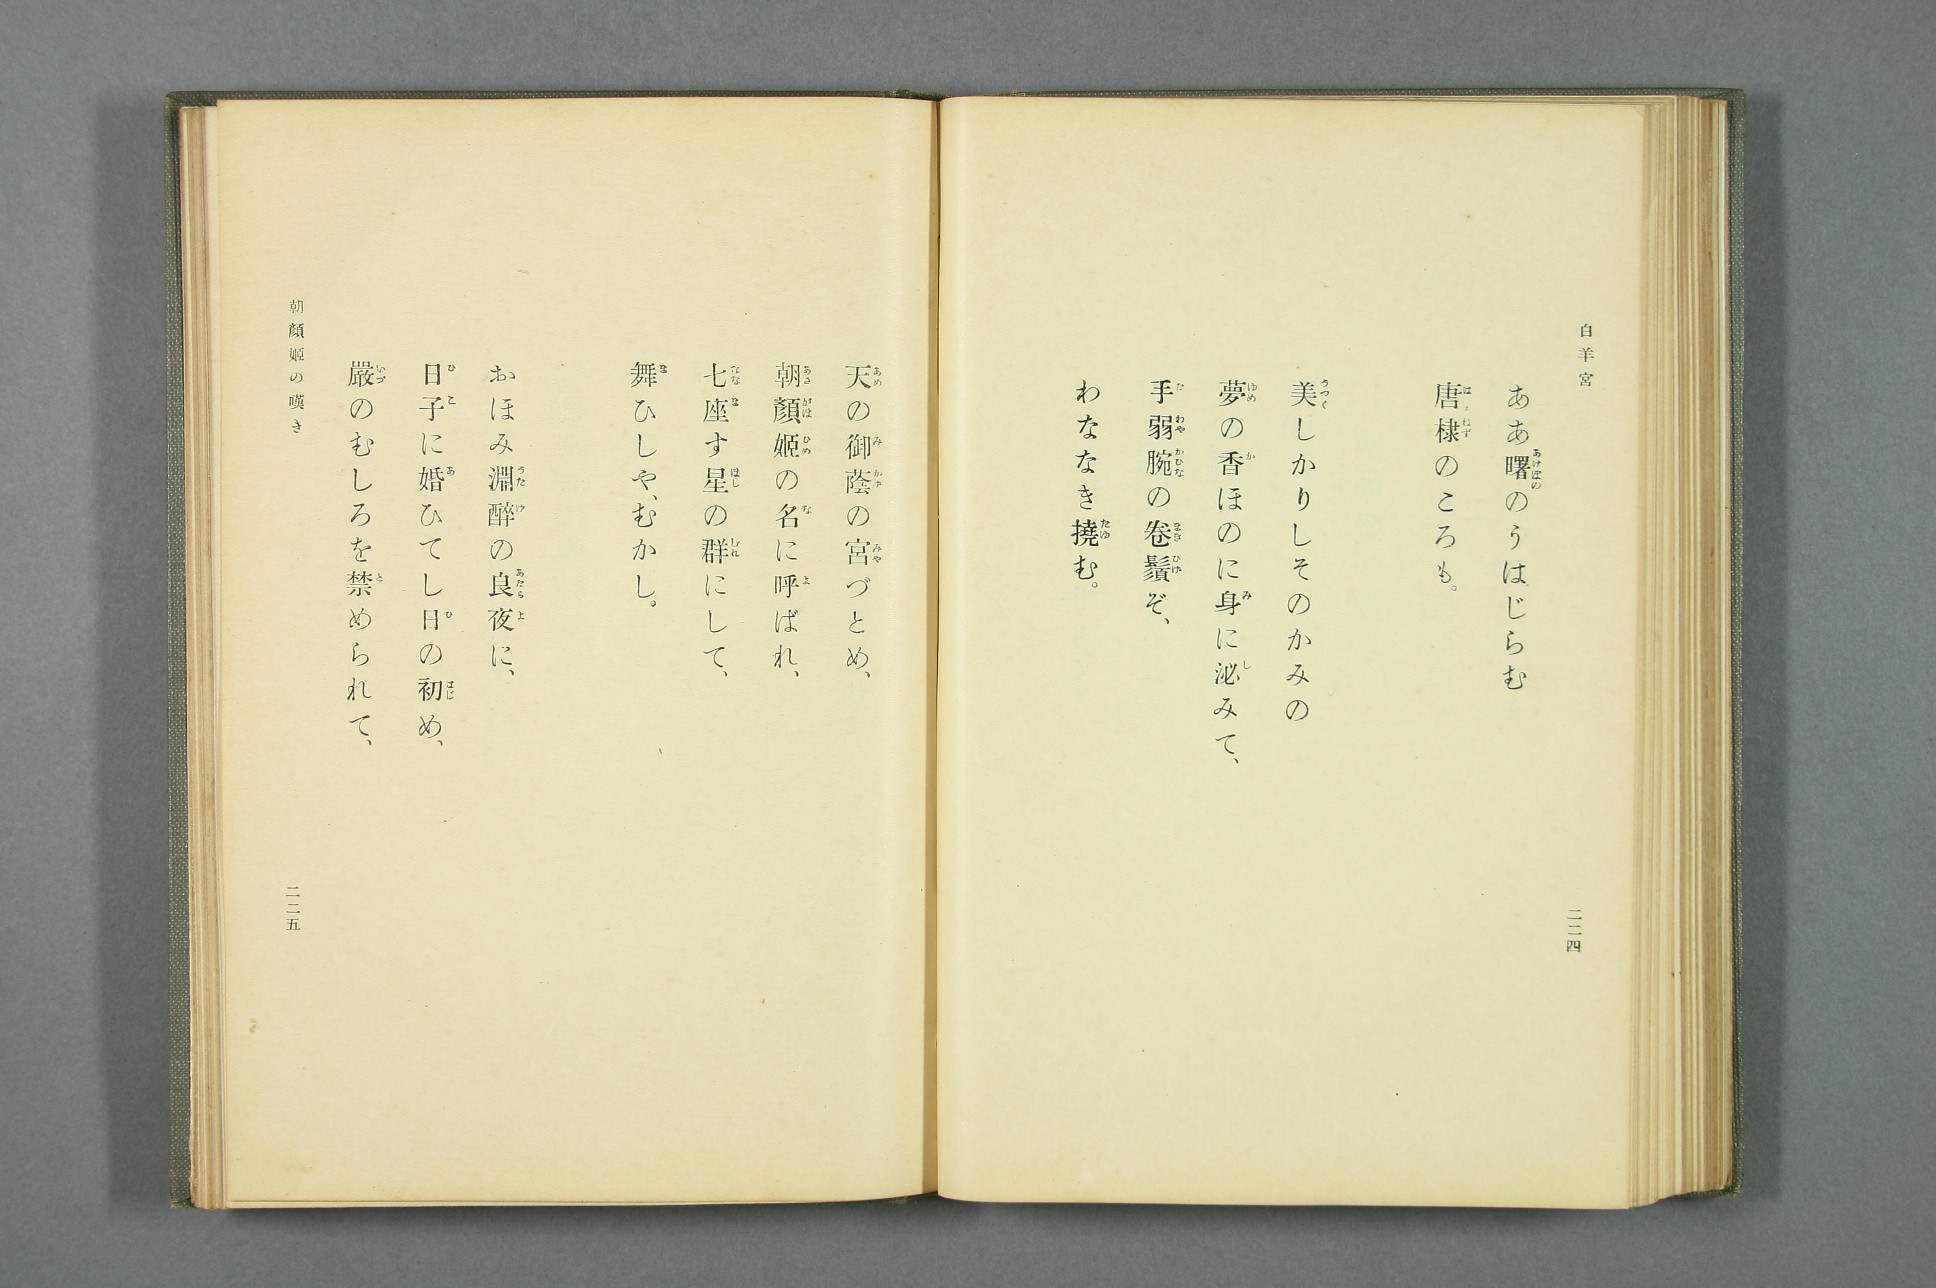 白羊宮
ああ曙のうはじらむ
唐棣のころも。
美しかりしそのかみの
夢の香ほのに身に泌みて、
手弱腕の卷鬚ぞ、
わななき撓む。
二二四
天の御蔭の宮づとめ、
朝顏姬の名に呼ばれ、
七座す星の群にして、
舞ひしや、むかし。
おほみ淵醉の良夜に、
日子に婚ひてし日の初め、
嚴のむしろを禁められて、
朝顏姬の嘆き
二二五